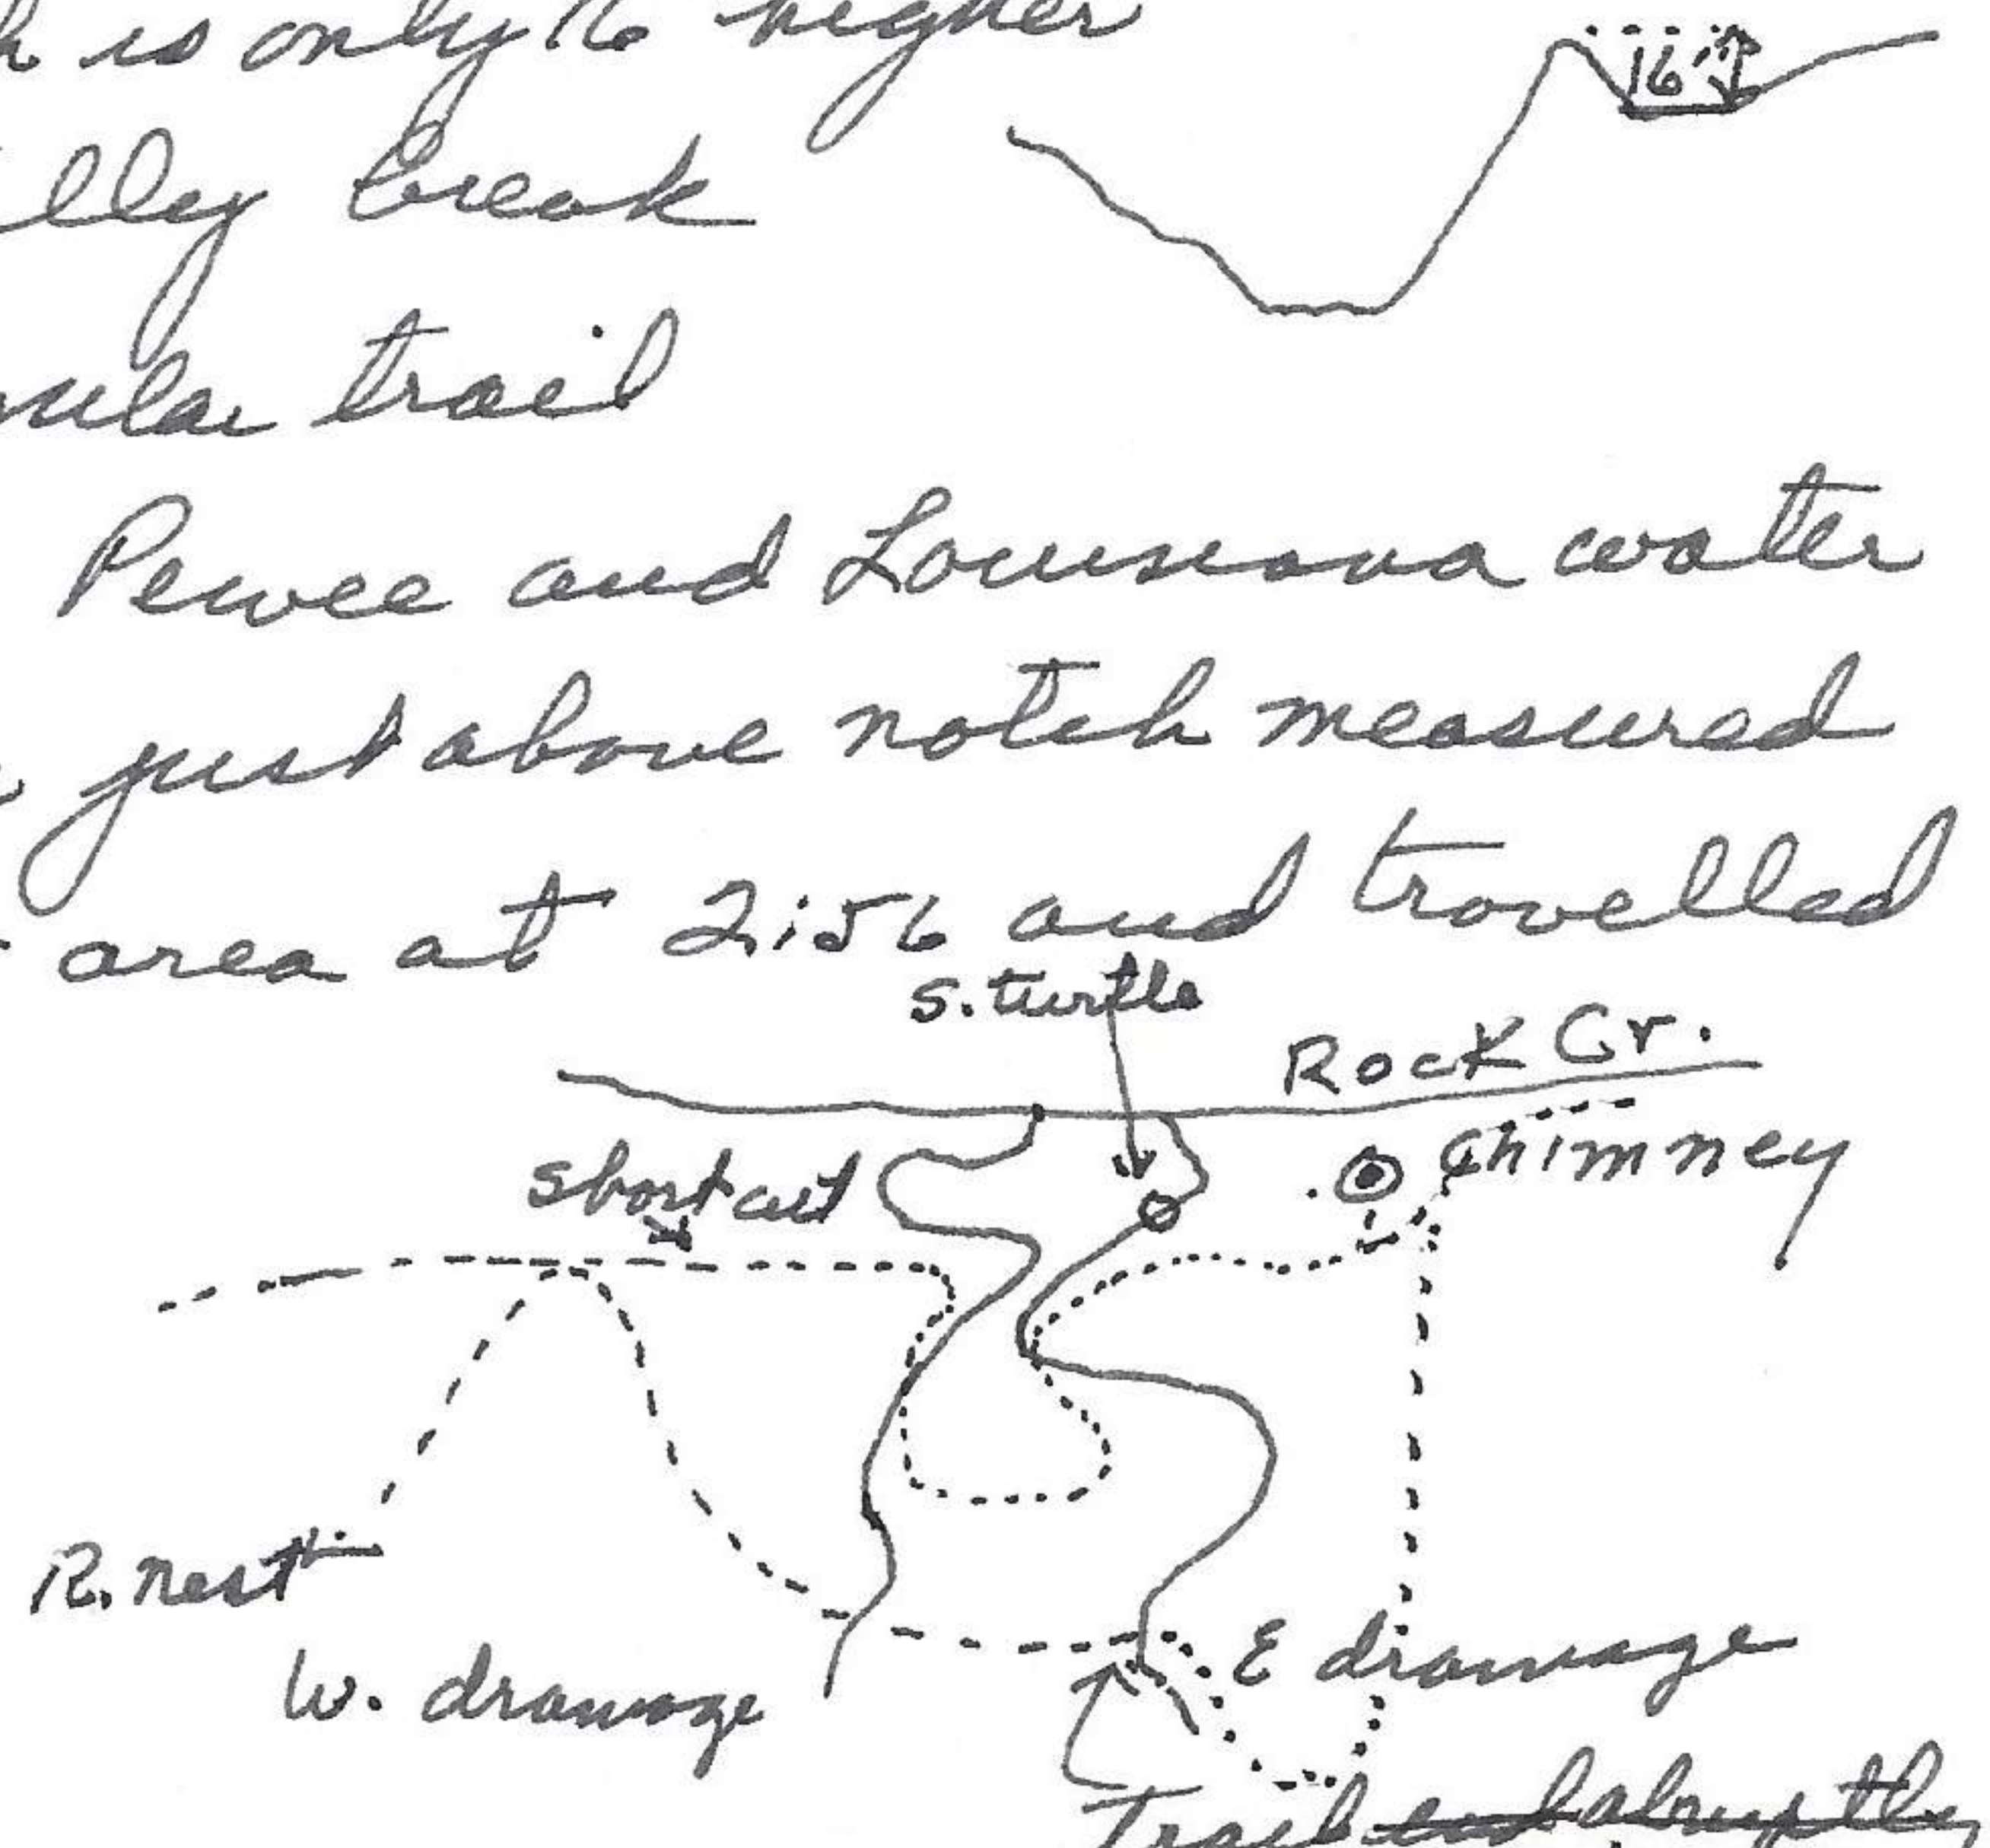 is only 16 higher
16"
break
trail
Pewee and Louisiana water
just above notch measured
area at 2:56 and travelled
S. turtle
Rock Cr.
chimney
Short cut
R. nest
W. drawage
E drawage
Trail end abruptly